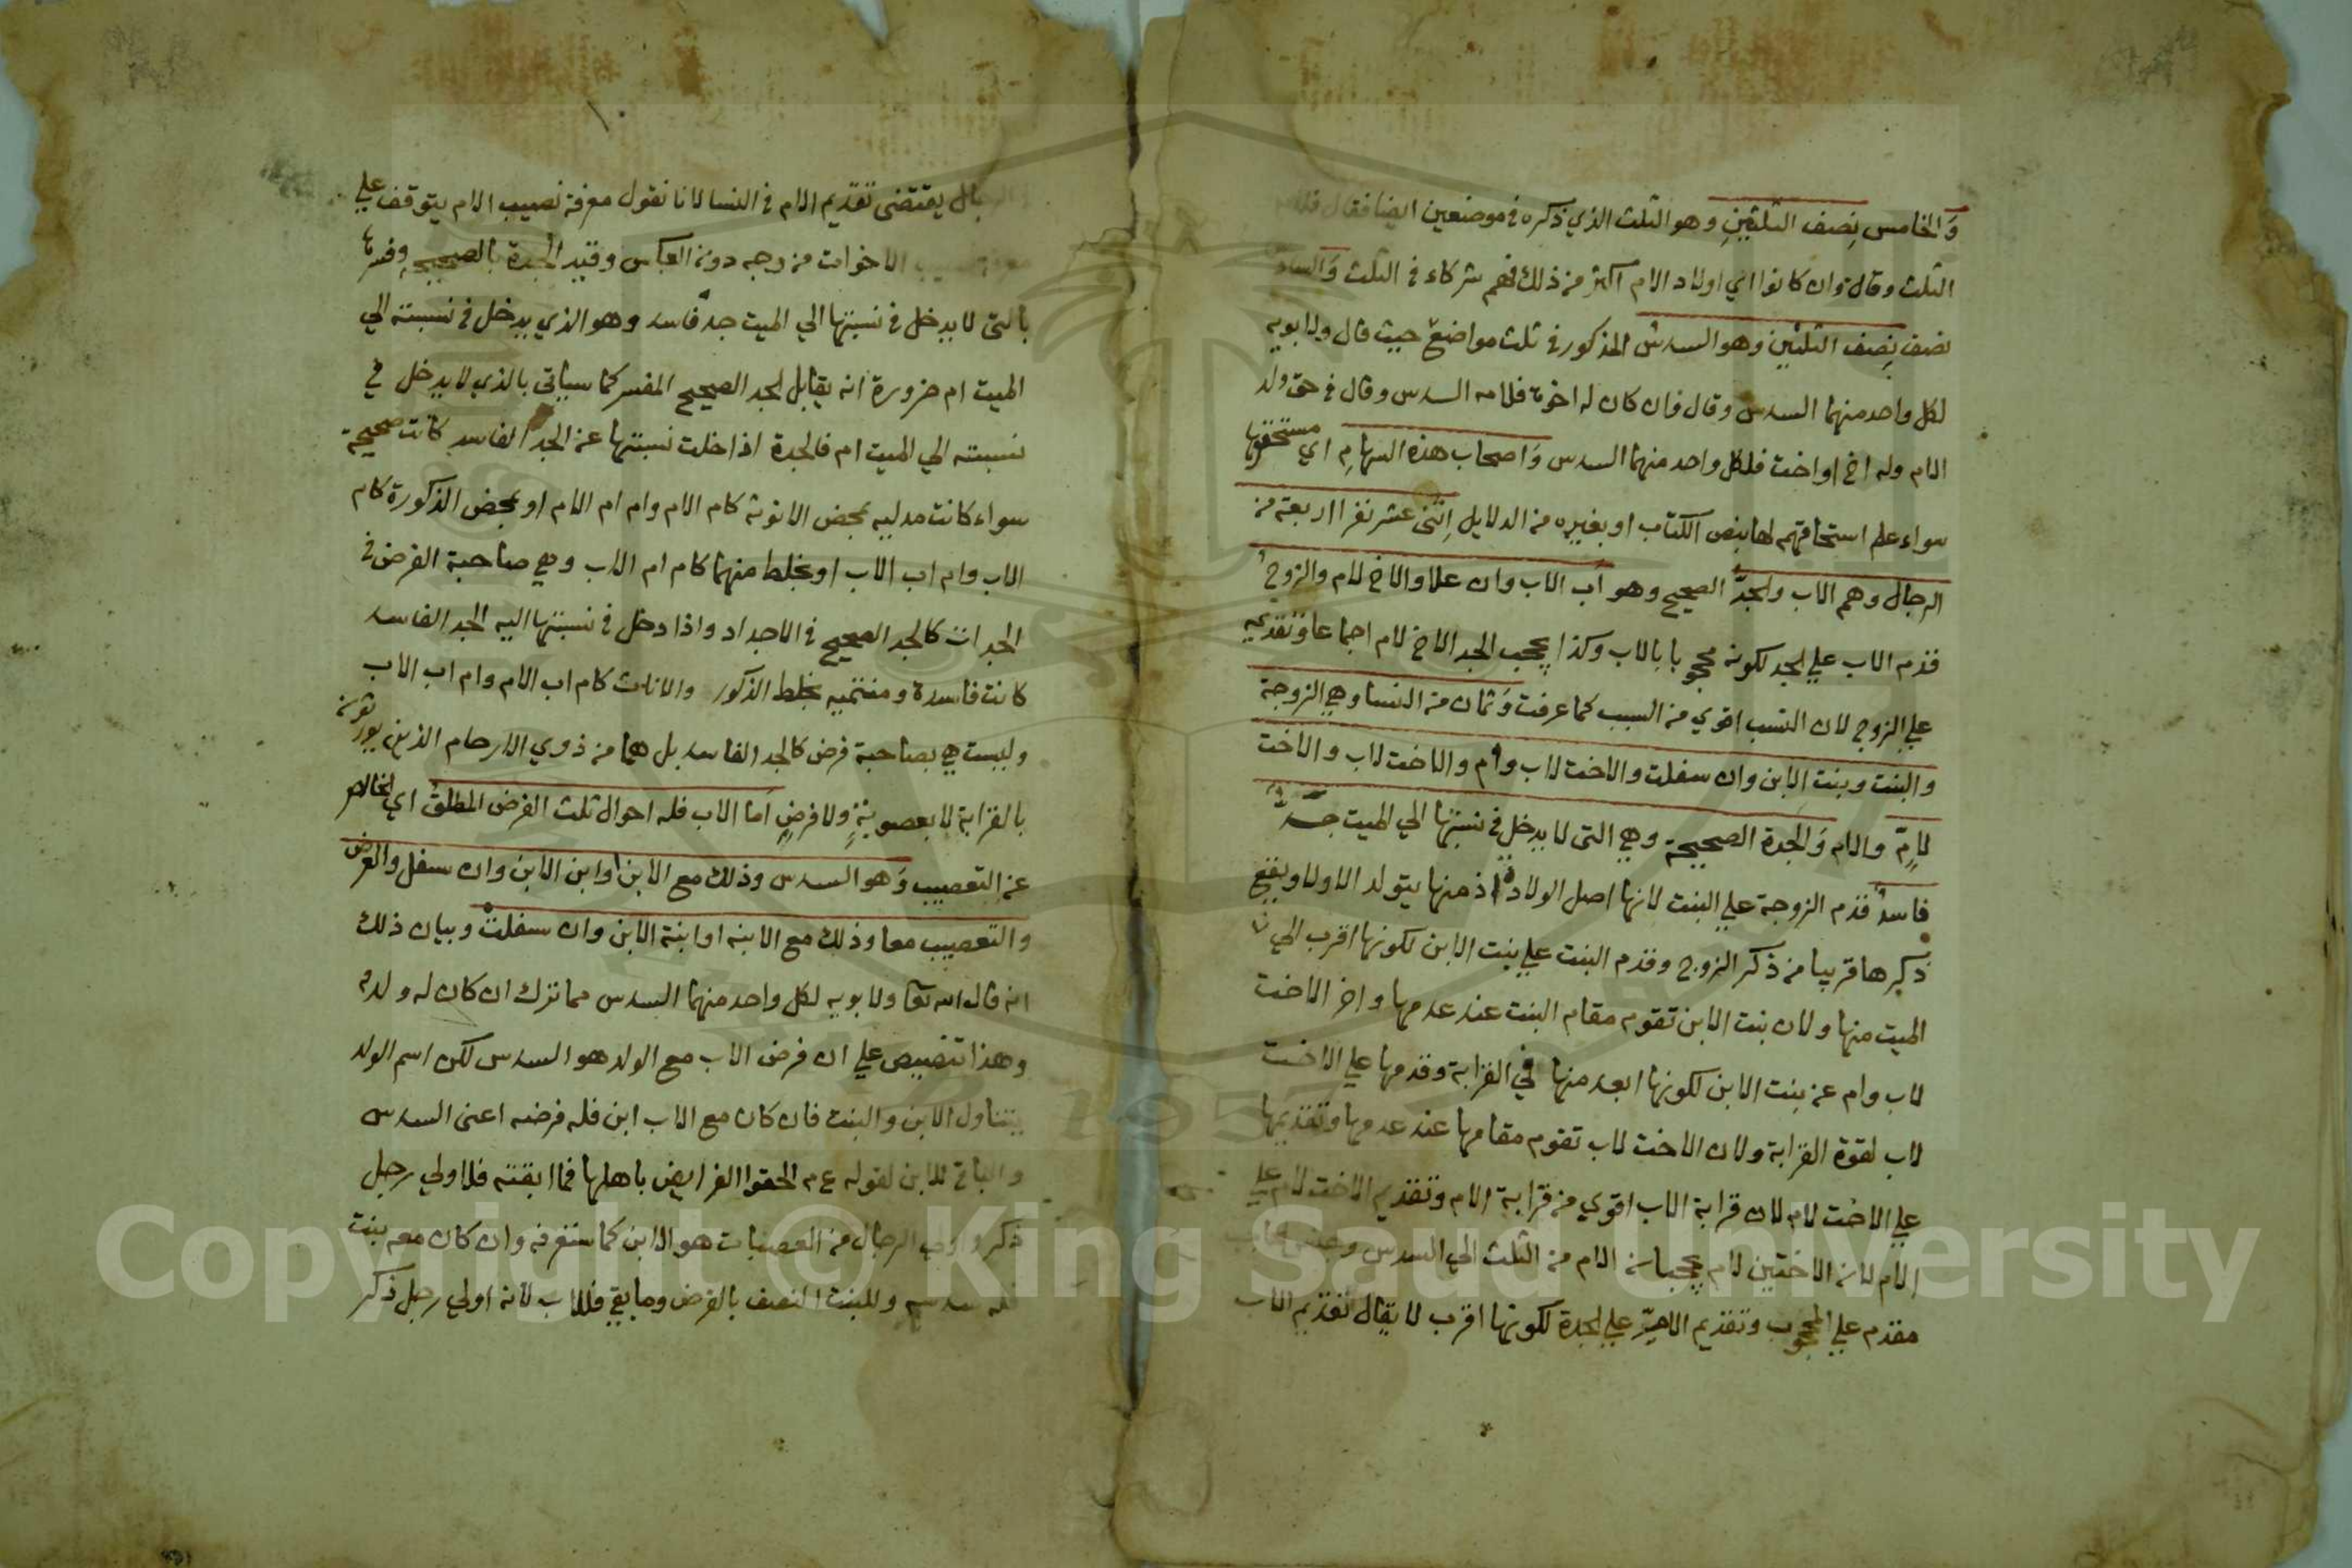 وَالخامس نِصف الثلثينِ وهو الثلث الذي ذكره في موضعين ايضا فقال فلامه
الثلث وقال وان كانوا اي اولاد الام اكثر من ذلك فهم شركاء في الثلث وَالسادس
نصف نِصف الثلثين وهو السدس المذكور في ثلث مواضع حيث قال ولابويه
لكل واحد منهما السدس وقال فان كان له اخوة فلامه السدس وقال في حق ولد
الام وله اخ او اخت فلكل واحد منهما السدس وَاصحاب هذه السهامِ اي مستحقوها
سواء علم استحاقهم لها بنص الكتاب او بغيره من الدلايل اِثنى عشر نفرا اربعة من
الرجال وهم الاب والجدّ الصحيح وهو اَب الاب وان علا والاخ لام والزوج
قدم الاب علي الجد لكونه محجوبا بالاب وكذا يحجب الجد الاخ لام اجماعا وتقديمه
علي الزوج لان النسب اقوي من السبب كما عرفت وَثمان من النسا وهي الزوجة
والبنت وبنت الابن وان سفلت والاخت لاب وام والاخت لاب والاخت
لامٍّ والام وَالجدة الصحيحة وهي التي لا يدخل في نسبتها الي الميت جدّ
فاسد قدم الزوجة علي البنت لانها اصل الولادة اذ منها يتولد الاولاد ويقع
ذكرها قريبا من ذكر الزوج وقدم البنت علي بنت الابن لكونها اقرب الي
الميت منها ولان بنت الابن تقوم مقام البنت عند عدمها واخر الاخت
لاب وام عن بنت الابن لكونها ابعد منها في القرابة وقدمها علي الاخت
لاب لقوة القرابة ولان الاخت لاب تقوم مقامها عند عدمها وتقديمها
علي الاخت لام لان قرابة الاب اقوي من قرابة الام وتقديم الاخت لام علي
الام لان الاختين لام يحجبان الام من الثلث الي السدس
مقدم علي المحجوب وتقديم الام علي الجدة لكونها اقرب لا يقال تقديم الاب
يقتضى تقديم الام في النسا لانا نقول معرفة نصيب الام يتوقف علي
الاخوات من وجه دون العكس وقيد الجدة بالصحيحة وفسرها
بالتي لا يدخل في نسبتها الي الميت جد فاسد وهو الذي يدخل في نسبته الي
الميت ام ضرورة انه يقابل الجد الصحيح المفسر كما سياتي بالذي لا يدخل في
نسبته الي الميت ام فالجدة اذا خلت نسبتها عن الجد الفاسد كانت صحيحة
سواء كانت مدليه بمحض الانوثة كام الام وام ام الام او بمحض الذكورة كام
الاب وام اب الاب او بخلط منهما كام ام الاب وهي صاحبة الفرض في
الجدات كالجد الصحيح في الاجداد واذا دخل في نسبتها اليه الجد الفاسد
كانت فاسدة ومنتميه بخلط الذكور والاناث كام اب الام وام اب الاب
وليست هي بصاحبة فرض كالجد الفاسد بل هما من ذوي الارحام الذين يورثونة
بالقرابة لا بعصوبةٍ ولا فرضٍ اَما الاب فله احوال ثلث الفرض المطلق اي الخالص
عن التعصيب وَهو السدس وذلك مع الابن اوابن الابن وان سفل والفرض
والتعصيب معا وذلك مع الابنه او ابنة الابن وان سفلت وبيان ذلك
انه قال الله تعا ولابويه لكل واحد منهما السدس مما ترك ان كان له ولد
وهذا تنصيص علي ان فرض الاب مع الولد هو السدس لكن اسم الولد
يتناول الابن والبنت فان كان مع الاب ابن فله فرضه اعنى السدس
والباقي للابن لقوله ع م الحقوا الفرايض باهلها فما ابقته فلاولي رجل
ذكر واولي الرجال من العصبات هو الابن كما ستعرفه وان كان معه بنت
فله سدسه وللبنت النصف بالفرض وما بقي فللاب لانه اولي رجل ذكر
Copyright © King Saud University
1957